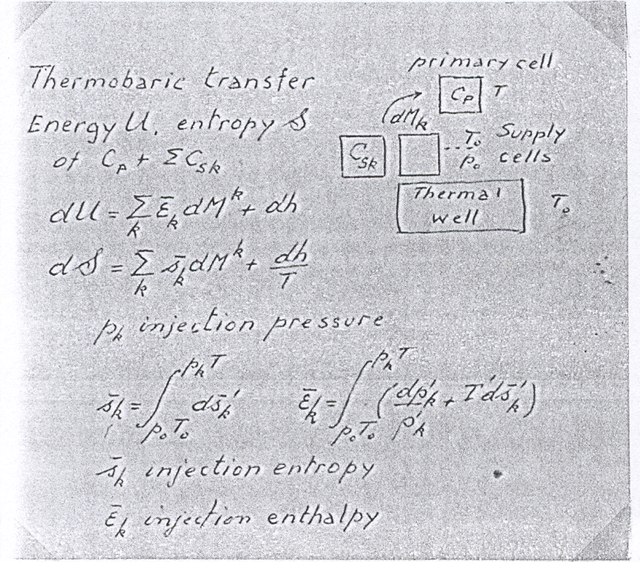 Thermobaric transfer
Energy U, entropy S
of Cp + ΣCsk
dU = Σ_k ε̄_k dM^k + dh
dS = Σ_k s̄_k dM^k + dh/T
primary cell
Cp T
dMk
Csk
T₀
p₀
Supply
cells
Thermal
well
T₀
p_k injection pressure
s̄_k = ∫_{p₀T₀}^{p_kT} ds̄'_k
ε̄_k = ∫_{p₀T₀}^{p_kT} (dp'_k/ρ'_k + T'ds̄'_k)
s̄_k injection entropy
ε̄_k injection enthalpy